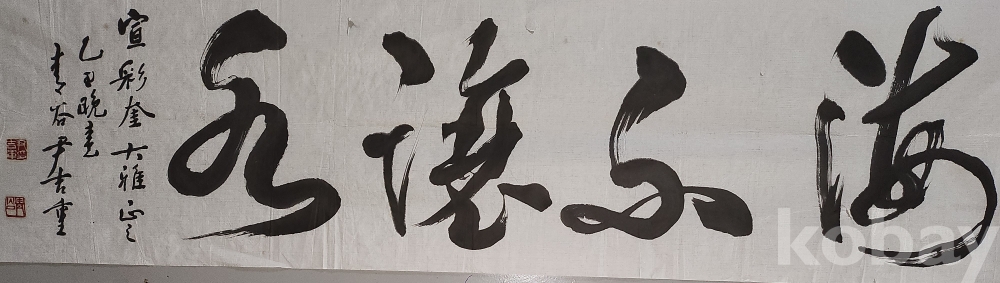 海不讓水
宣彩奎大雅正之
乙丑晩春
青谷尹吉重
kobay